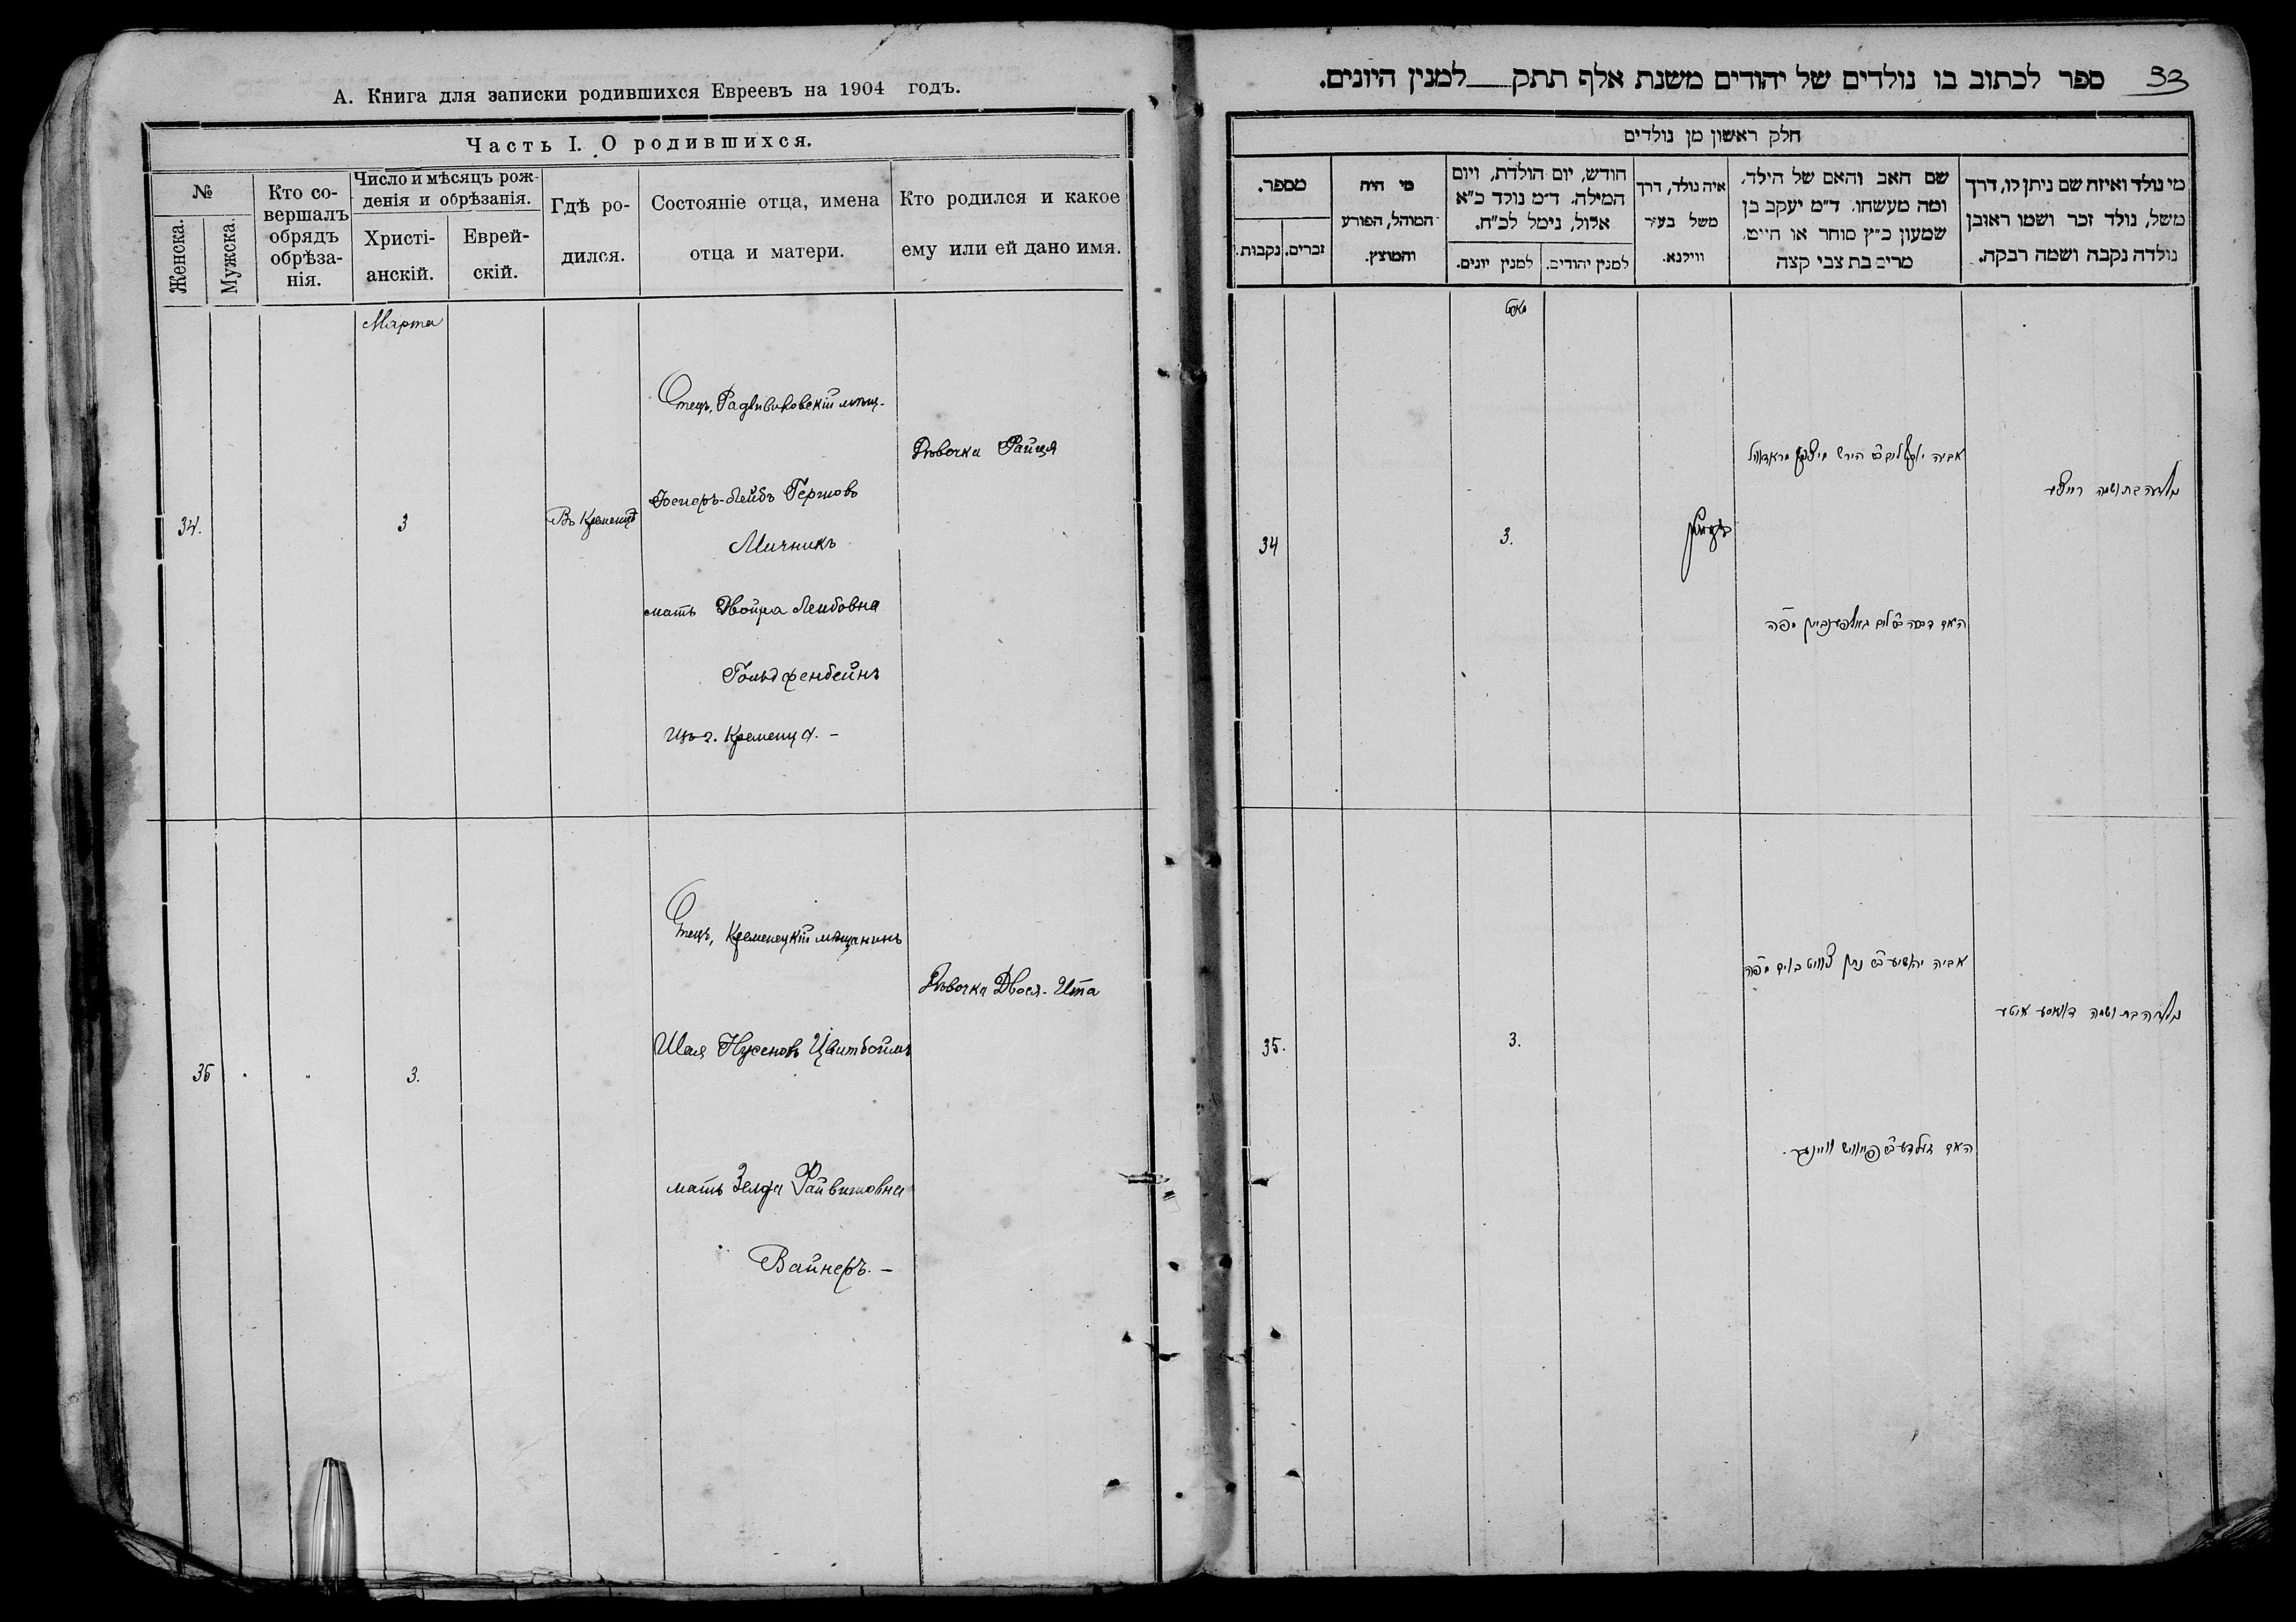 А. Книга для записки родившихся Евреевъ на 1904 годъ.
Часть I. О родившихся.
№
Женска.
Мужска.
Кто со-
вершалъ
обрядъ
обрѣза-
нія.
Число и мѣсяцъ рож-
денія и обрѣзанія.
Христі-
анскій.
Еврей-
скій.
Гдѣ ро-
дился.
Состояніе отца, имена
отца и матери.
Кто родился и какое
ему или ей дано имя.
Марта
34.
3
Въ Кременцѣ
Отецъ, Радзивиловскій мѣщ-
Лейбъ Гершовъ
Мичникъ
мать Двойра Лейбовна
Гольдфенбейнъ
изъ г. Кременца. -
Дѣвочка Райця
35
3.
Отецъ, Кременецкій мѣщанинъ
Шая Нусеновъ Цвитбоймъ
мать Зелда Файвишовна
Вайнеръ. -
Дѣвочка Двося-Ита
33
ספר לכתוב בו נולדים של יהודים משנת אלף תתק___למנין היונים.
חלק ראשון מן נולדים
מי נולד ואיזה שם ניתן לו, דרך
משל, נולד זכר ושמו ראובן
נולדה נקבה ושמה רבקה.
שם האב והאם של הילד,
ומה מעשהו. ד״מ יעקב בן
שמעון כ״ץ סוחר או חייט,
מרים בת צבי קצה
איה נולד, דרך
משל בעיר
ווילנא.
חודש, יום הולדת, ויום
המילה. ד״מ נולד כ״א
אלול, נימל לכ״ח.
למנין יהודים.
למנין יונים.
מי היה
המוהל, הפורע
והמוצץ.
מספר.
זכרים.
נקבות.
מארט
נולדה בת ושמה רייצע
הירש מיטשניק מראדוויל
האם
קרעמניץ
3.
34
נולדה בת ושמה דוואסע איטע
אביה יהושע ב״ר נתן צוויטבוים מפה
האם זעלדע ב״ר פייוויש וויינער.
3.
35.